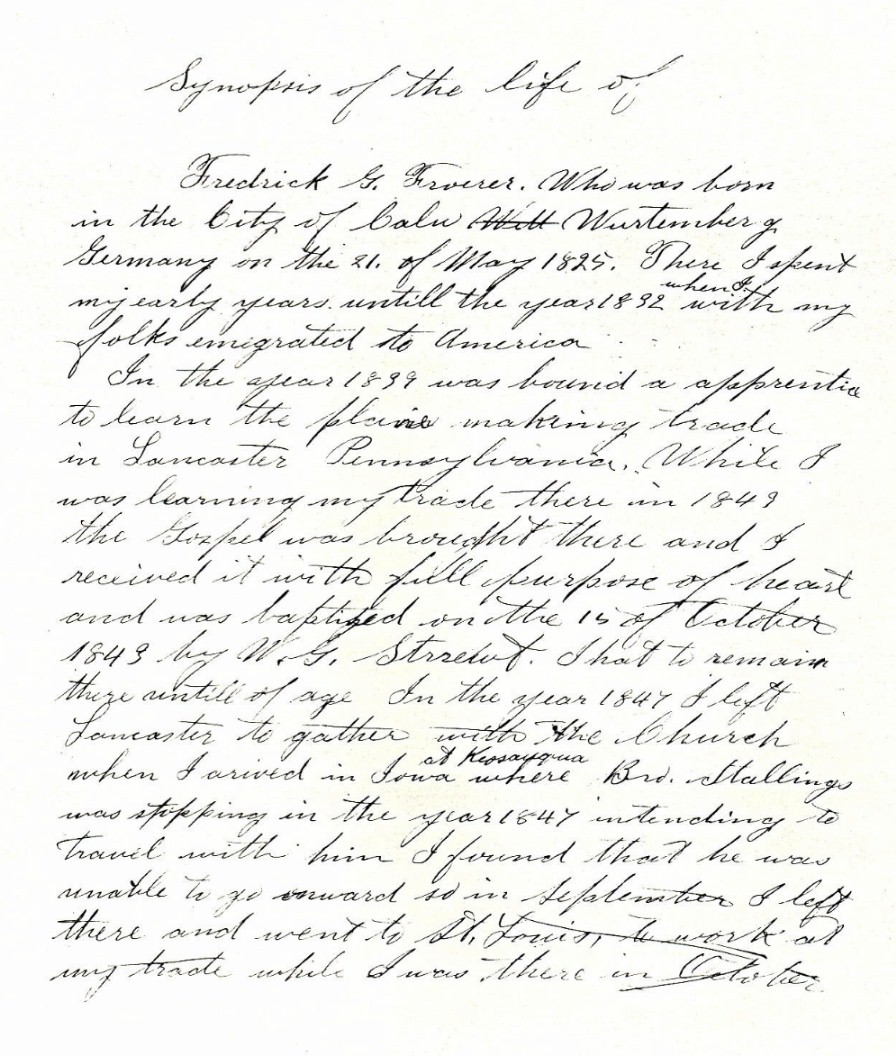 Synopsis of the life of
Fredrick G. Froerer. Who was born
in the City of Calw Witt Wurtemberg
Germany on the 21. of May 1825. There I spent
my early years. untill the year 1832 when I with my
folks emigrated to America
In the year 1839 was bound a apprentice
to learn the plaine making trade
in Lancaster Pennsylvania. While I
was learning my trade there in 1843
the Gospel was brought there and I
received it with full purpose of heart
and was baptized on the 15 of October
1843 by W. G. I hat to remain
there untill of age In the year 1847 I left
Lancaster to gather with the Church
when I arived in Iowa at Keosauqua where Bro. Stallings
was stopping in the year 1847 intending to
travel with him I found that he was
unable to go onward so in September I left
there and went to St. Louis, to work at
my trade while I was there in October